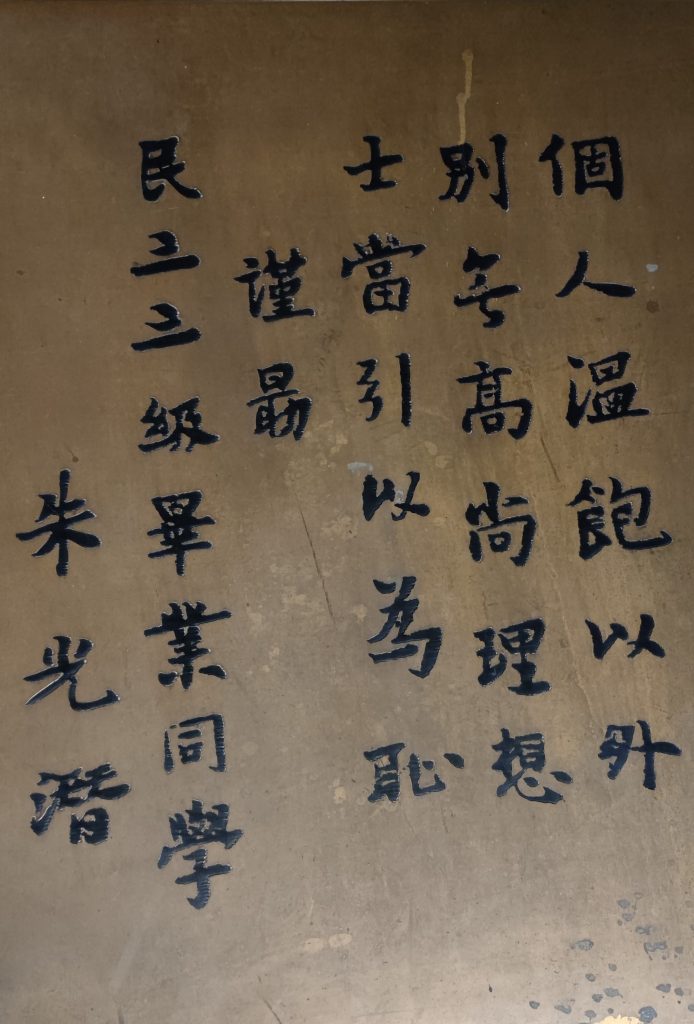 個人溫飽以外
別無高尚理想
士當引以為恥
謹勗
民二二级畢業同學
朱光潛